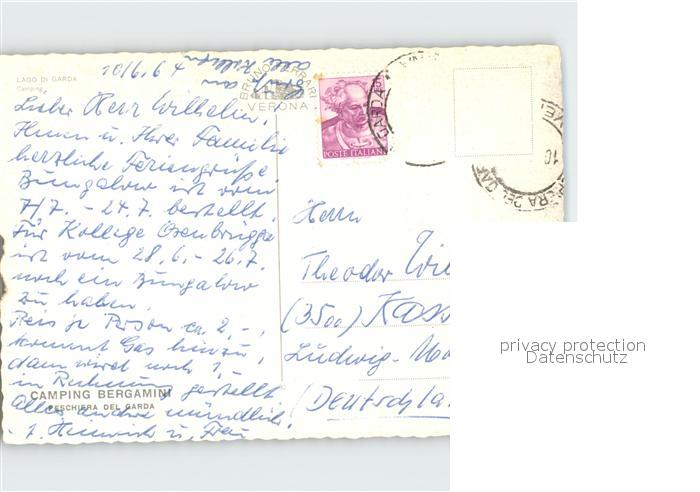 LAGO DI GARDA
Camping
10/6.64
BRUNO FERRARI
VERONA
an alle
Lieber Herr Wilhelm,
Ihnen u. Ihrer Familie
herzliche Feriengrüße.
Bungalow ist vom
7/7. - 24.7. bestellt.
Für Kollege Osenbrügge
ist vom 28.6. - 26.7.
noch ein Bungalow
zu haben.
Preis je Person ca. 2,-,
kommt Gas hinzu,
dann wird noch 1,-
in Rechnung gestellt
alles andere mündlich.
CAMPING BERGAMINI
PESCHIERA DEL GARDA
Heinrich u. Frau
POSTE ITALIANE
Herrn
Theodor Wil
(3500) Kass
Ludwig-Mo
Deutschla
privacy protection
Datenschutz